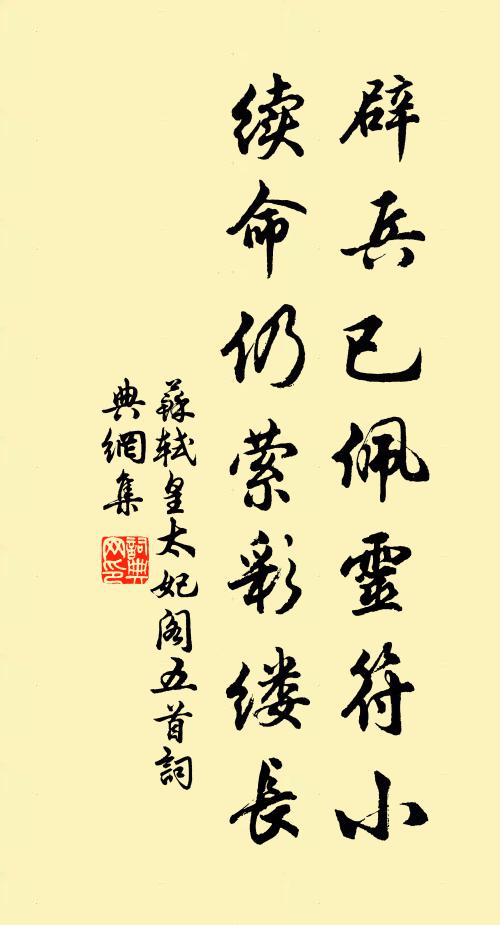 辟兵已佩靈符小
续命仍萦彩缕長
蘇轼皇太妃阁五首詞
典網集
詞典网印